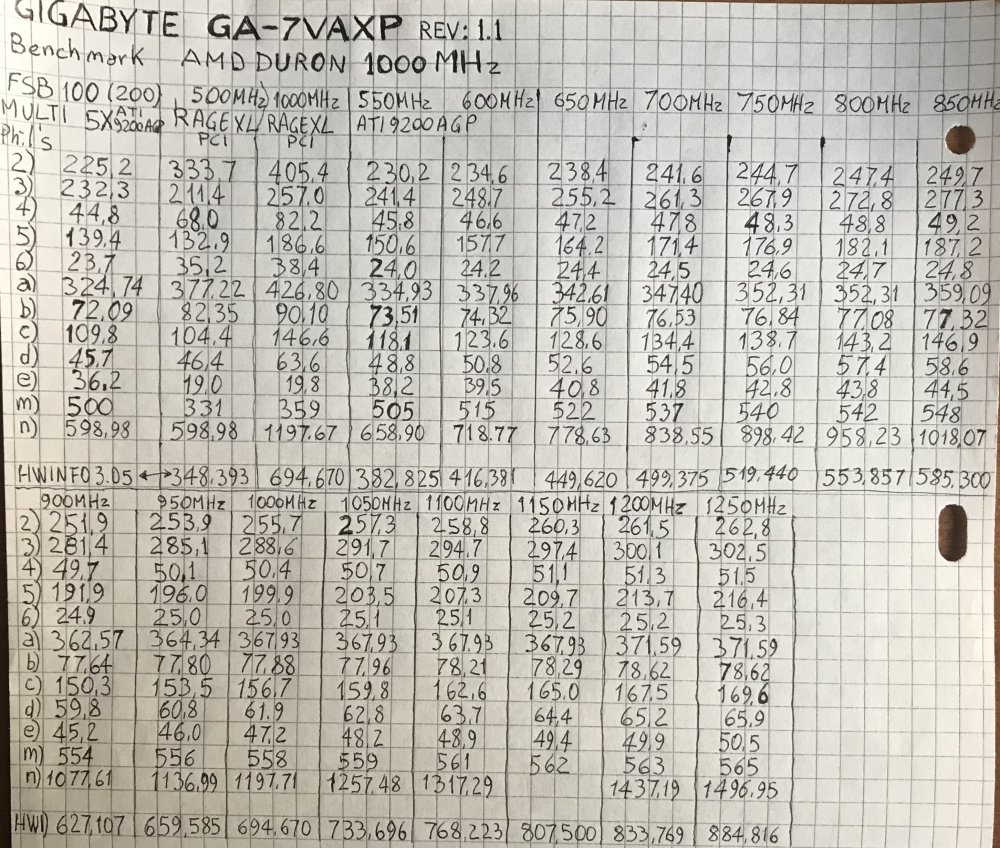 GIGABYTE GA-7VAXP REV: 1.1
Benchmark AMD DURON 1000 MHz
FSB 100 (200) 500MHz/ 1000MHz 550MHz 600MHz 650MHz 700MHz 750MHz 800MHz 850MHz
MULTI 5X ATI 9200AGP RAGEXL/ PCI RAGEXL PCI ATI 9200AGP
Phil's
2) 225,2 333,7 405,4 230,2 234,6 238,4 241,6 244,7 247,4 249,7
3) 232,3 211,4 257,0 241,4 248,7 255,2 261,3 267,9 272,8 277,3
4) 44,8 68,0 82,2 45,8 46,6 47,2 47,8 48,3 48,8 49,2
5) 139,4 132,9 186,6 150,6 157,7 164,2 171,4 176,9 182,1 187,2
6) 23,7 35,2 38,4 24,0 24,2 24,4 24,5 24,6 24,7 24,8
a) 324,74 377,22 426,80 334,93 337,96 342,61 347,40 352,31 352,31 359,09
b) 72,09 82,35 90,10 73,51 74,32 75,90 76,53 76,84 77,08 77,32
c) 109,8 104,4 146,6 118,1 123,6 128,6 134,4 138,7 143,2 146,9
d) 45,7 46,4 63,6 48,8 50,8 52,6 54,5 56,0 57,4 58,6
e) 36,2 19,0 19,8 38,2 39,5 40,8 41,8 42,8 43,8 44,5
m) 500 331 359 505 515 522 537 540 542 548
n) 598,98 598,98 1197.67 658,90 718.77 778,63 838,55 898,42 958,23 1018,07
HWINFO 3.05 ↔ 348,393 694,670 382,825 416,381 449,620 499,375 519.440 553,857 585,300
900MHz 950MHz 1000MHz 1050MHz 1100MHz 1150MHz 1200MHz 1250MHz
2) 251,9 253,9 255,7 257,3 258,8 260,3 261,5 262,8
3) 281,4 285,1 288,6 291,7 294,7 297,4 300,1 302,5
4) 49,7 50,1 50,4 50,7 50,9 51,1 51,3 51,5
5) 191,9 196,0 199,9 203,5 207,3 209,7 213,7 216,4
6) 24,9 25,0 25,0 25,1 25,1 25,2 25,2 25,3
a) 362,57 364,34 367,93 367,93 367,93 367,93 371,59 371,59
b) 77,64 77,80 77,88 77,96 78,21 78,29 78,62 78,62
c) 150,3 153,5 156,7 159,8 162,6 165,0 167,5 169,6
d) 59,8 60,8 61,9 62,8 63,7 64,4 65,2 65,9
e) 45,2 46,0 47,2 48,2 48,9 49,4 49,9 50,5
m) 554 556 558 559 561 562 563 565
n) 1077,61 1136,99 1197.71 1257,48 1317,29 1437,19 1496,95
HWI) 627,107 659,585 694,670 733,696 768,223 807,500 833,769 884,816